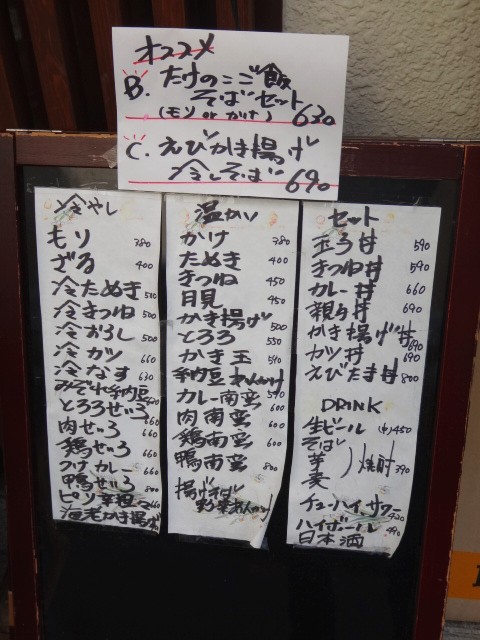 オススメ
B. たけのこご飯
そばセット
(モリ or かけ) 630
C. えびかき揚げ
冷しそば 690
冷やし
もり 380
ざる 400
冷たぬき 500
冷きつね 500
冷おろし 500
冷カツ 660
冷なす 630
みぞれ納豆
とろろせいろ 660
肉せいろ 660
鶏せいろ 660
つけカレー 660
鴨せいろ 800
ピリ辛
海老かき揚げ
温かい
かけ 380
たぬき 400
きつね 450
月見 450
かき揚げ 500
とろろ 550
かき玉 590
納豆あんかけ
カレー南蛮 600
肉南蛮 600
鶏南蛮 600
鴨南蛮 800
揚げそば
野菜あんかけ
セット
玉子丼 590
きつね丼 590
カレー丼 660
親子丼 690
かき揚げ丼 690
カツ丼 690
えびたま丼 800
DRINK
生ビール (中)450
そば
芋
麦
焼酎 390
チューハイ・サワー 420
ハイボール
日本酒 490